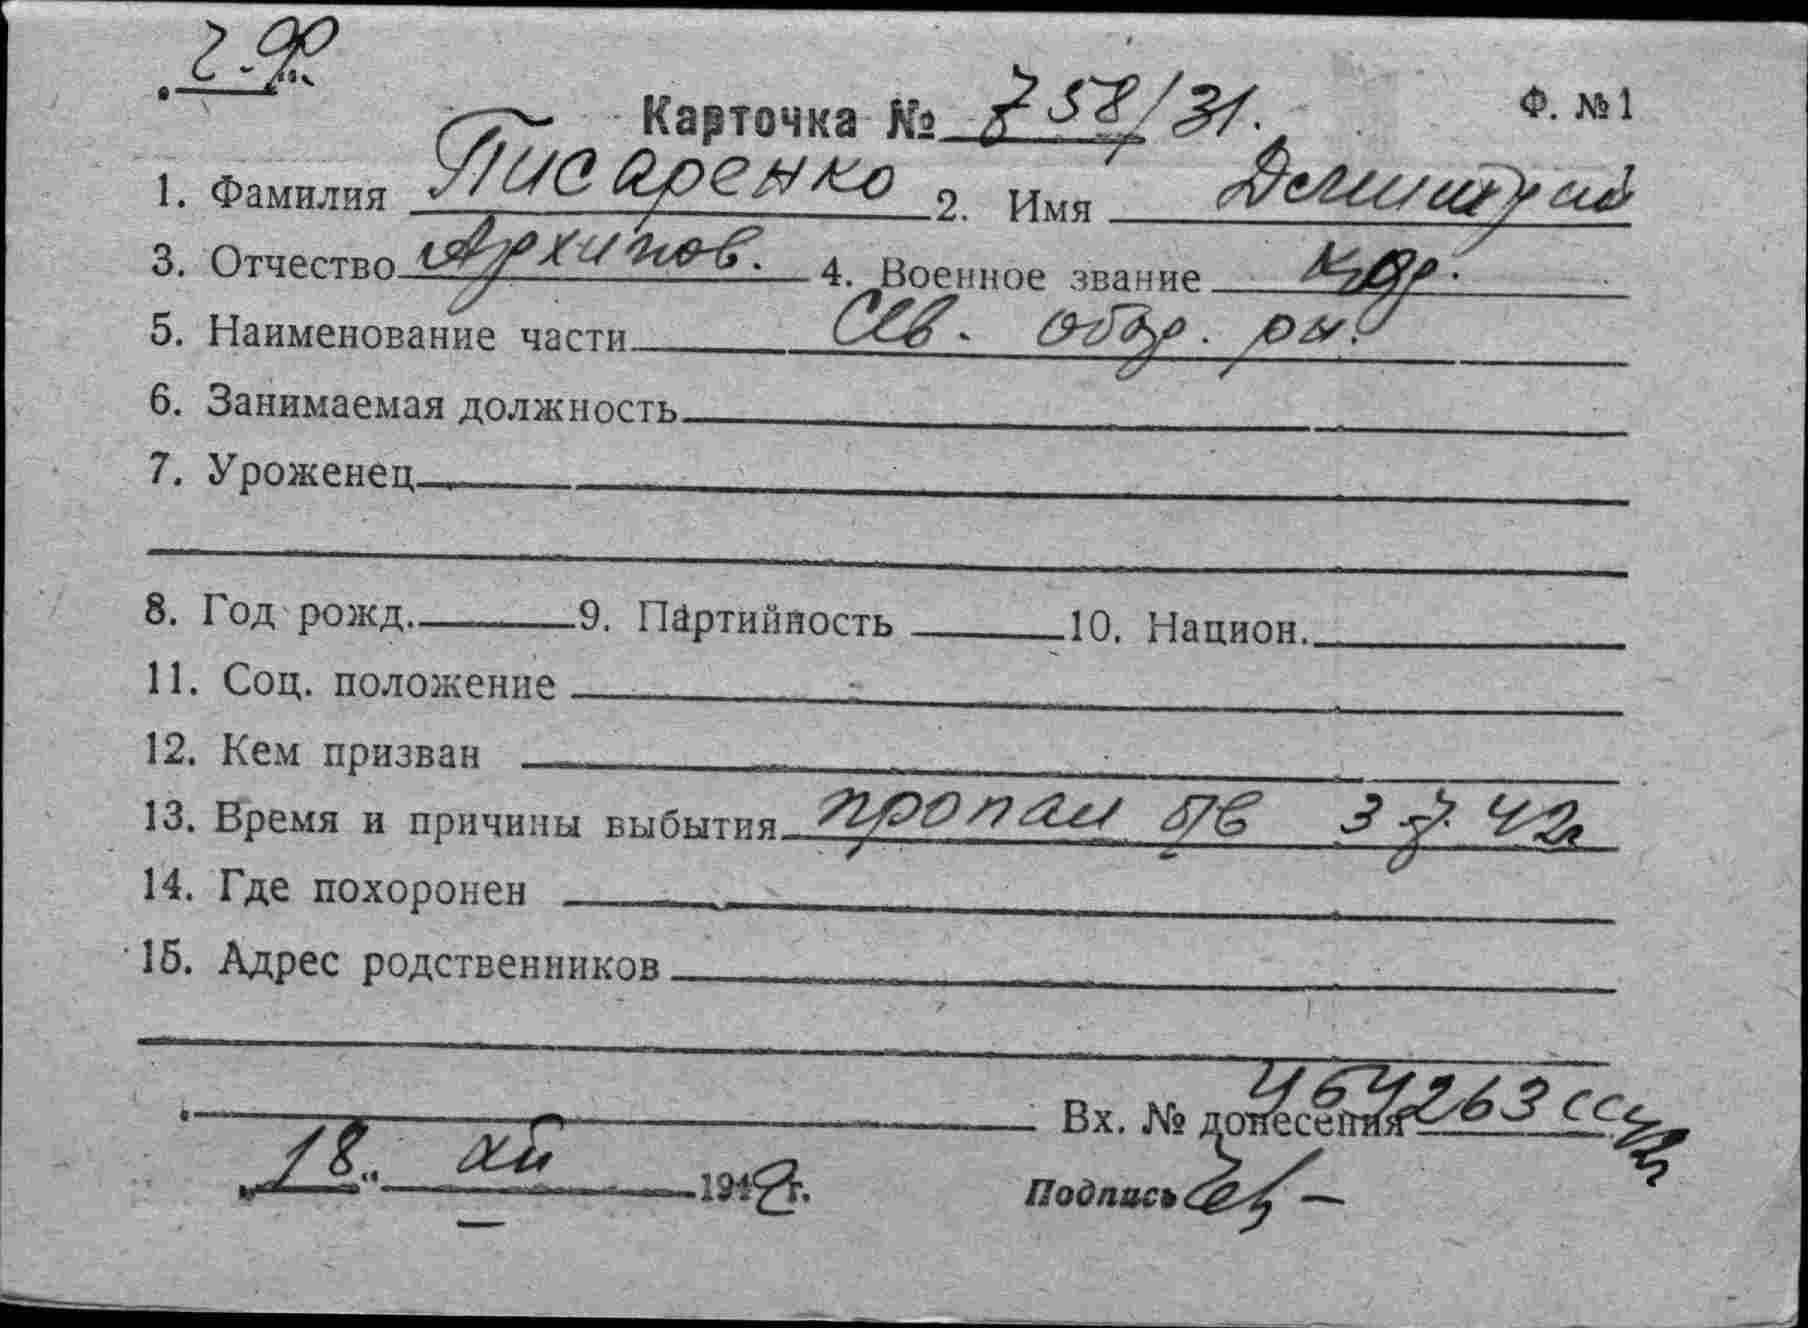 Ф. №1
Карточка № 758/31.
1. Фамилия Писаренко 2. Имя
3. Отчество Архипов. 4. Военное звание кр.
5. Наименование части Сев. обор. р-н.
6. Занимаемая должность
7. Уроженец
8. Год рожд. 9. Партийность 10. Национ.
11. Соц. положение
12. Кем призван
13. Время и причины выбытия пропал бв 3 7. 42
14. Где похоронен
15. Адрес родственников
Вх. № донесения
18 XII 194 г. Подпись